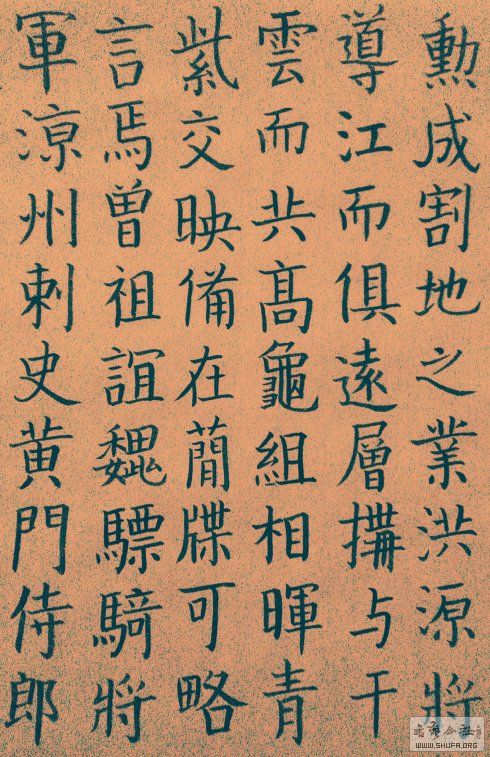 勲成割地之業洪源将
導江而俱遠層搆与干
雲而共髙龜組相暉青
紫交映備在蕳牒可略
言焉曾祖誼魏驃騎將
軍涼州刺史黄門侍郎
WWW.SHUFA.ORG